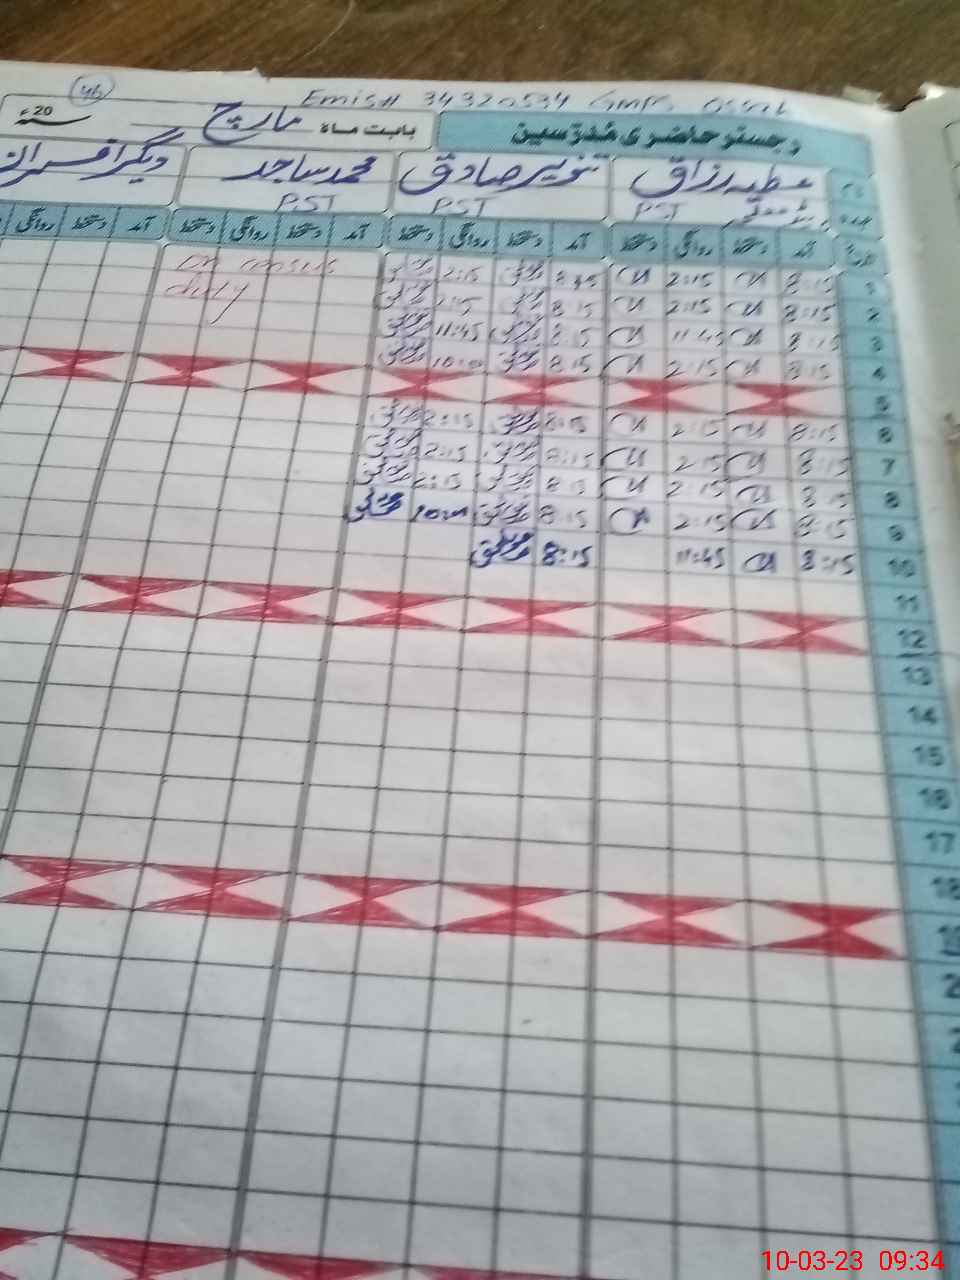 46
Emis# 34320534 GMPS
رجسٹر حاضری مُدرّسین بابت ماہ مارچ 20ء
عطیہ رزاق تنویر صادق محمد ساجد دیگر افسران
PST PST PST
تاریخ آمد دستخط روانگی دستخط آمد دستخط روانگی دستخط آمد دستخط روانگی دستخط آمد دستخط روانگی
1 8:15 2:15 8:45 2:15 On census
2 8:15 2:15 8:15 2:15 duly
3 8:15 11:45 8:15 11:45
4 8:15 2:15 8:15
5
6 8:15 2:15 8:15 2:15
7 8:15 2:15 8:15 2:15
8 8:15 2:15 8:15 2:15
9 8:15 2:15 8:15
10 8:15 11:45 8:15
11
12
13
14
15
16
17
18
19
10-03-23 09:34